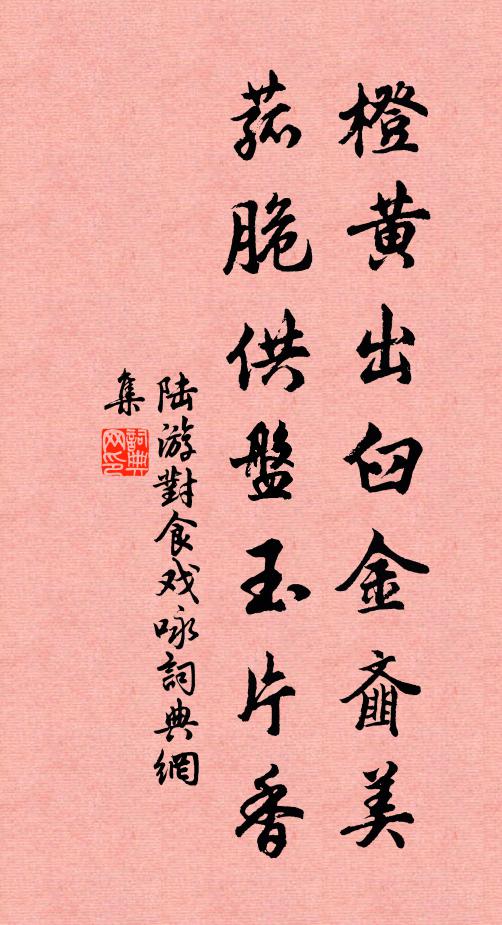 橙黄出臼金齑美
菰脆供盤玉片香
陆游對食戏咏詞典網
集
詞典网印